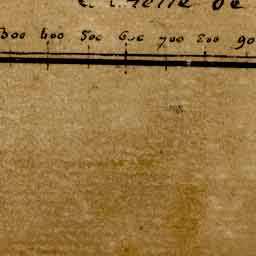 Echelle de
300 400 500 600 700 800 90